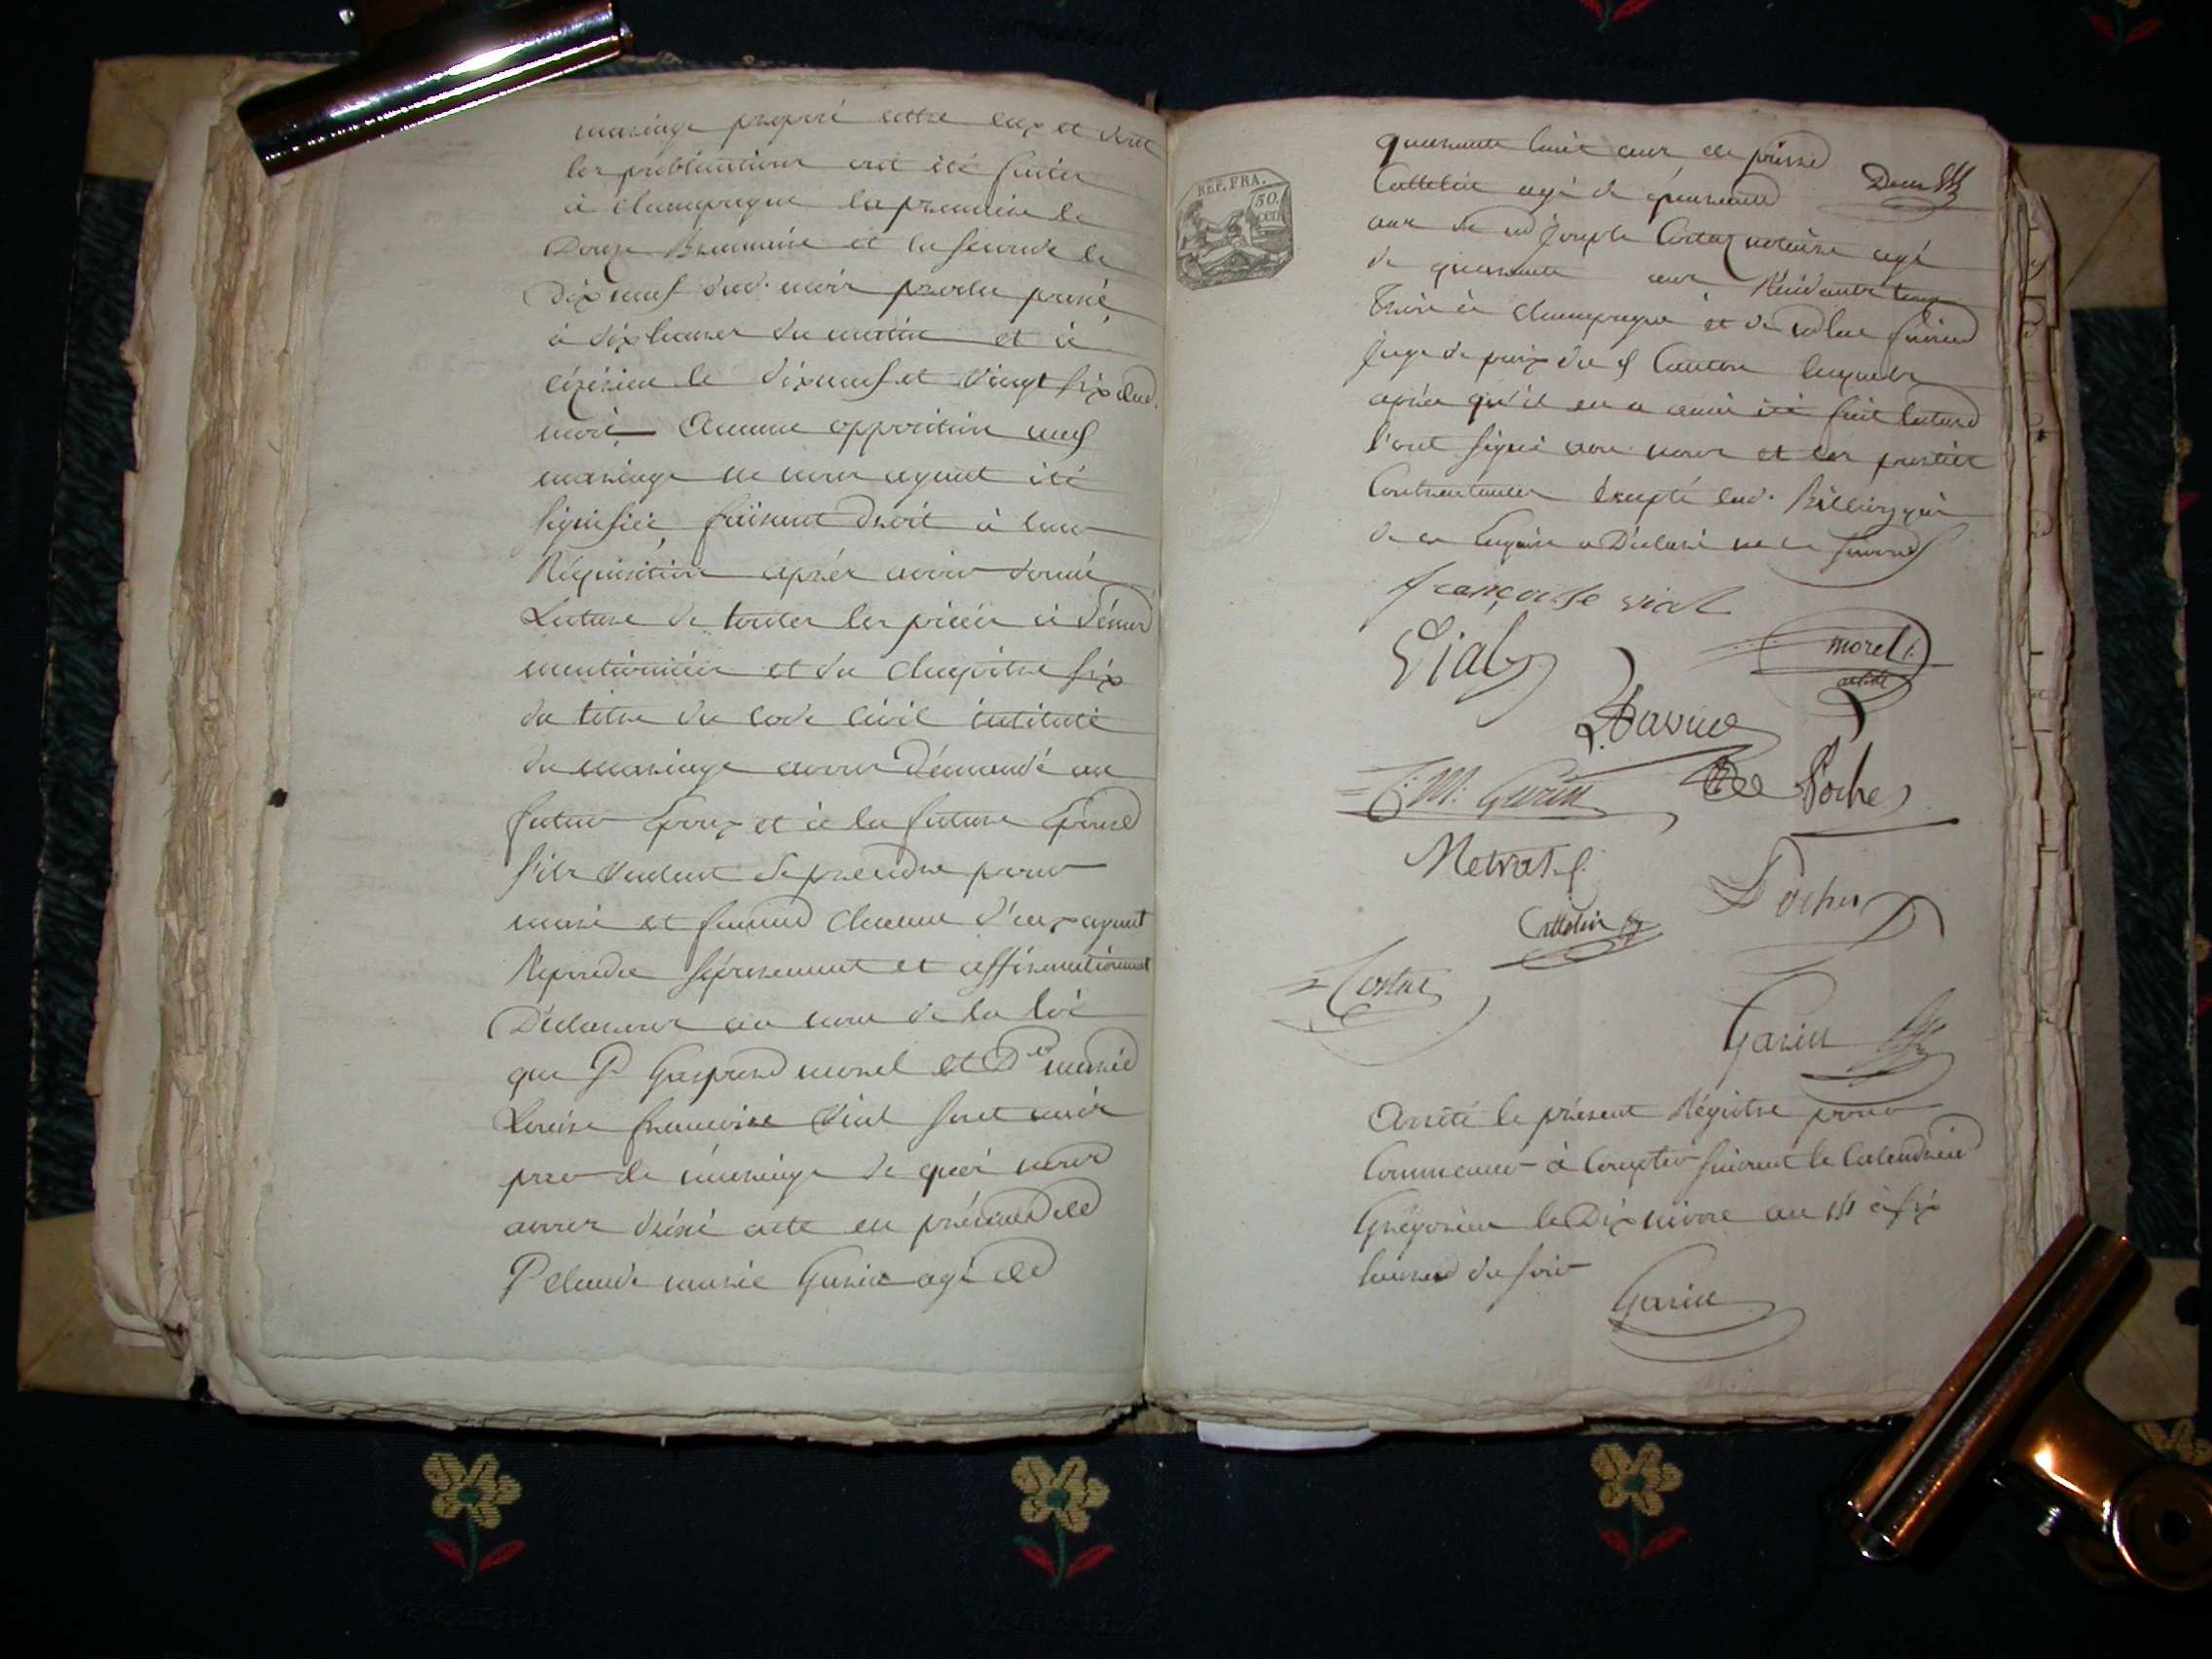 mariage proposé entre eux et dont
les publications ont été faites
à champagne la premiere le
Douze Brumaire et la seconde le
Dix neuf dud. mois proche passé
à dix heures du matin et à
cézérieu le dixneuf et vingt six dud.
mois Aucune opposition aud
mariage ne nous ayant été
signifiée, faisant droit à leur
Réquisition après avoir donné
Lecture de toutes les pièces ci dessus
mentionnées et du chapitre six
du titre du code civil intitulé
du mariage avons demandé au
futur Epoux et à la future Epouse
s'ils veulent se prendre pour
mari et femme chacun d'eux ayant
Repondu séparement et affirmativement
Déclarons au nom de la loi
que Gaspard morel et Dlle marie
Louise françoise Vial sont unis
par le mariage de quoi nous
avons dréssé acte en présence de
claude marie Garin agé de
REP. FRA.
50.
cen
quarante huit ans de
Cattelin agé de quarante
ans de Joseph Costaz notaire agé
de quarante ans Résidants tous
trois à champagne et de
juge de paix du d Canton lesquels
après qu'il en a aussi été fait lecture
l'ont signé avec nous et les parties
Contractantes Excepté lad. qui
de ce Enquise a Déclaré ne le
françoise vial
Vial
morel
J: M: Garin
De Poche
Metrat
Cattelin
Costaz
Garin
Arrêté le présent Régistre pour
Commencer à Compter suivant le Calendrier
Grégorien le Dix nivose an 14 à six
heures du soir
Garin